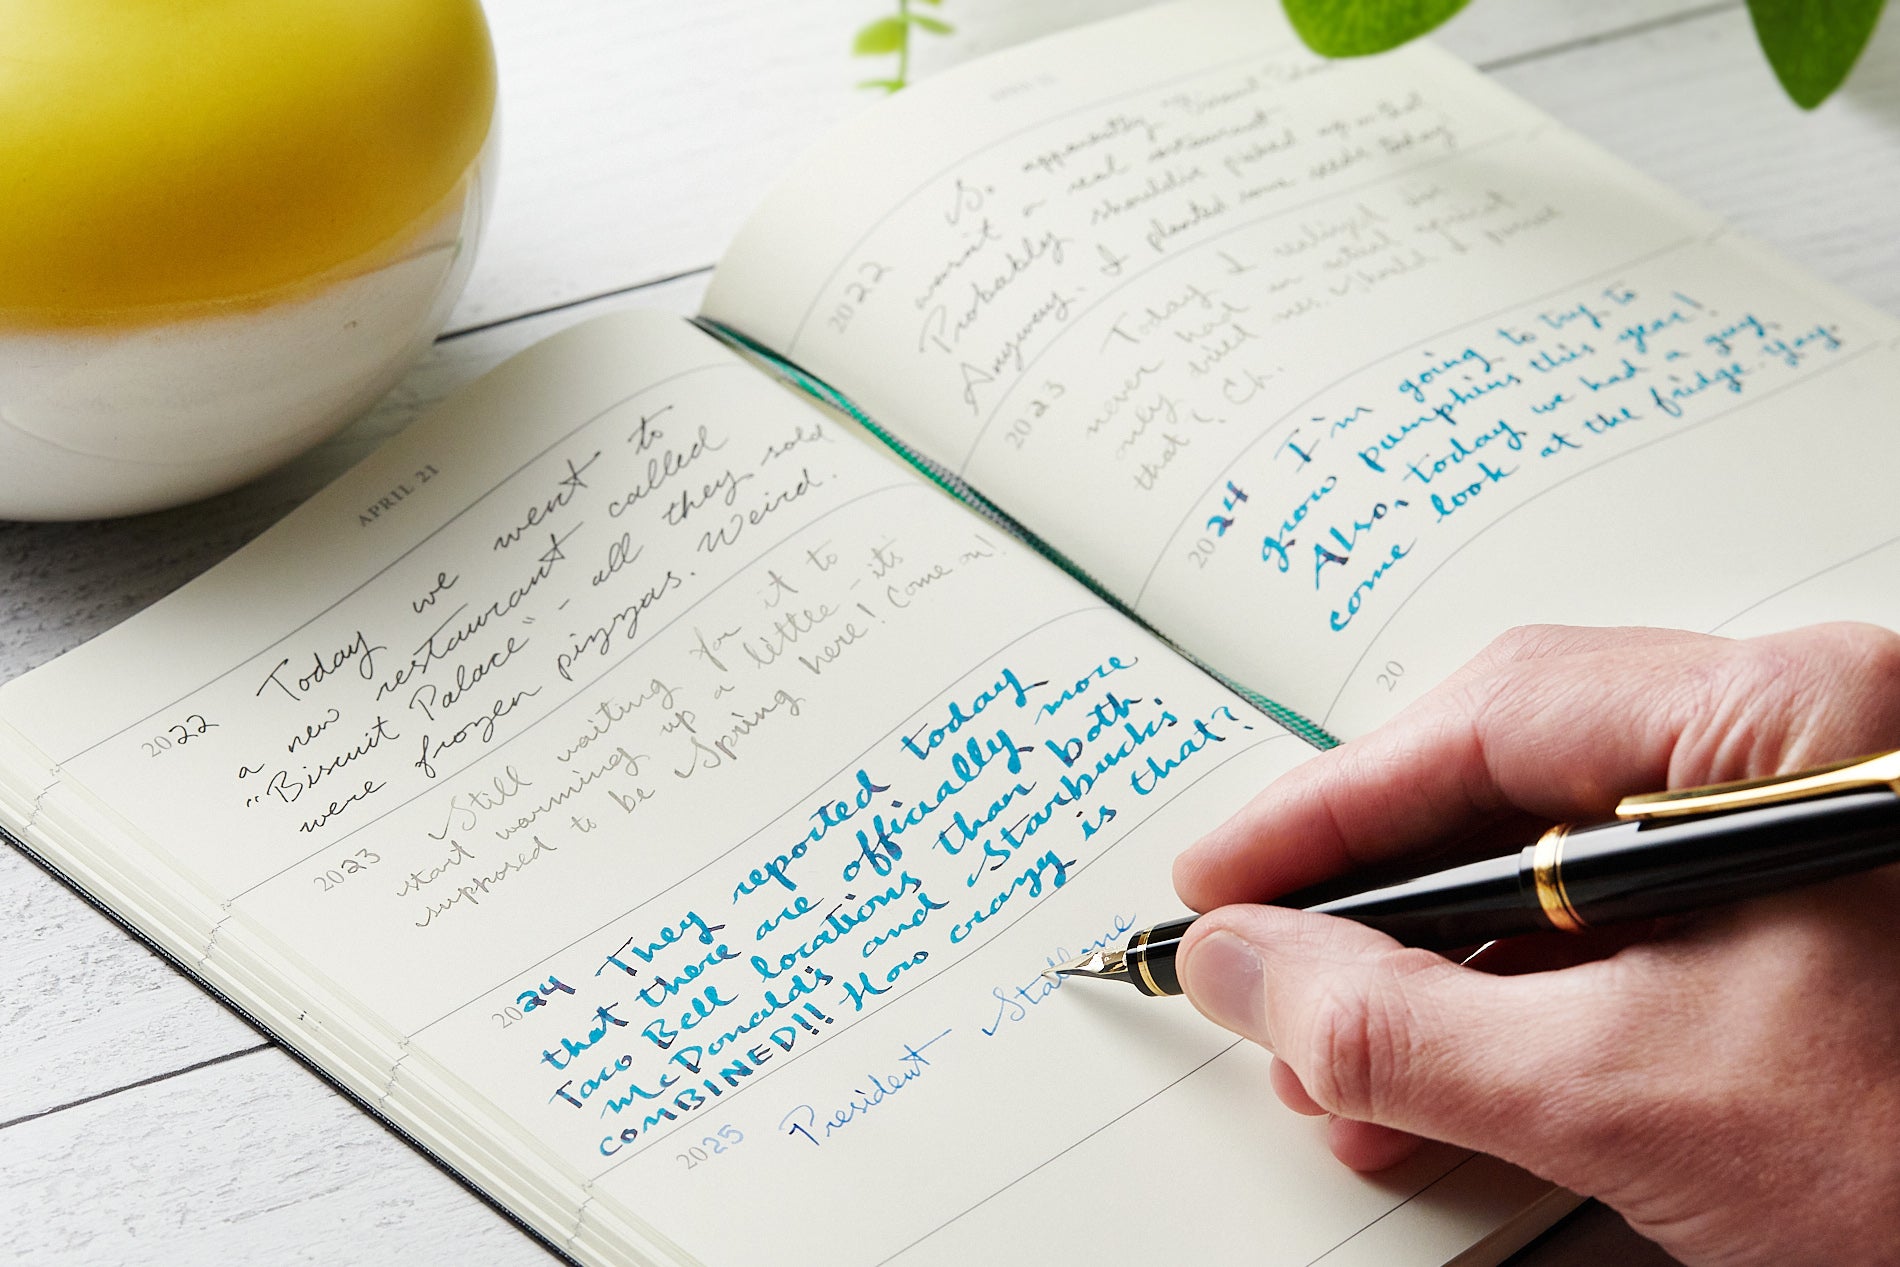 APRIL 21
2022 Today we went to
a new restaurant called
"Biscuit Palace" - all they sold
were frozen pizzas. Weird.
2023 Still waiting for it to
start warming up a little - it's
supposed to be Spring here! Come on!
2024 They reported today
that there are officially more
Taco Bell locations than both
McDonald's and Starbucks
COMBINED!! How crazy is that?
2025 President Stallone
2022 So apparently "Biscuit
wasn't a real restaurant.
Probably should've picked up on that
Anyway, I planted some seeds today
2023 Today I realized I've
never had an actual apricot
only dried ones. Should I
that? Eh.
2024 I'm going to try to
grow pumpkins this year!
Also, today we had a guy
come look at the fridge. Yay.
20